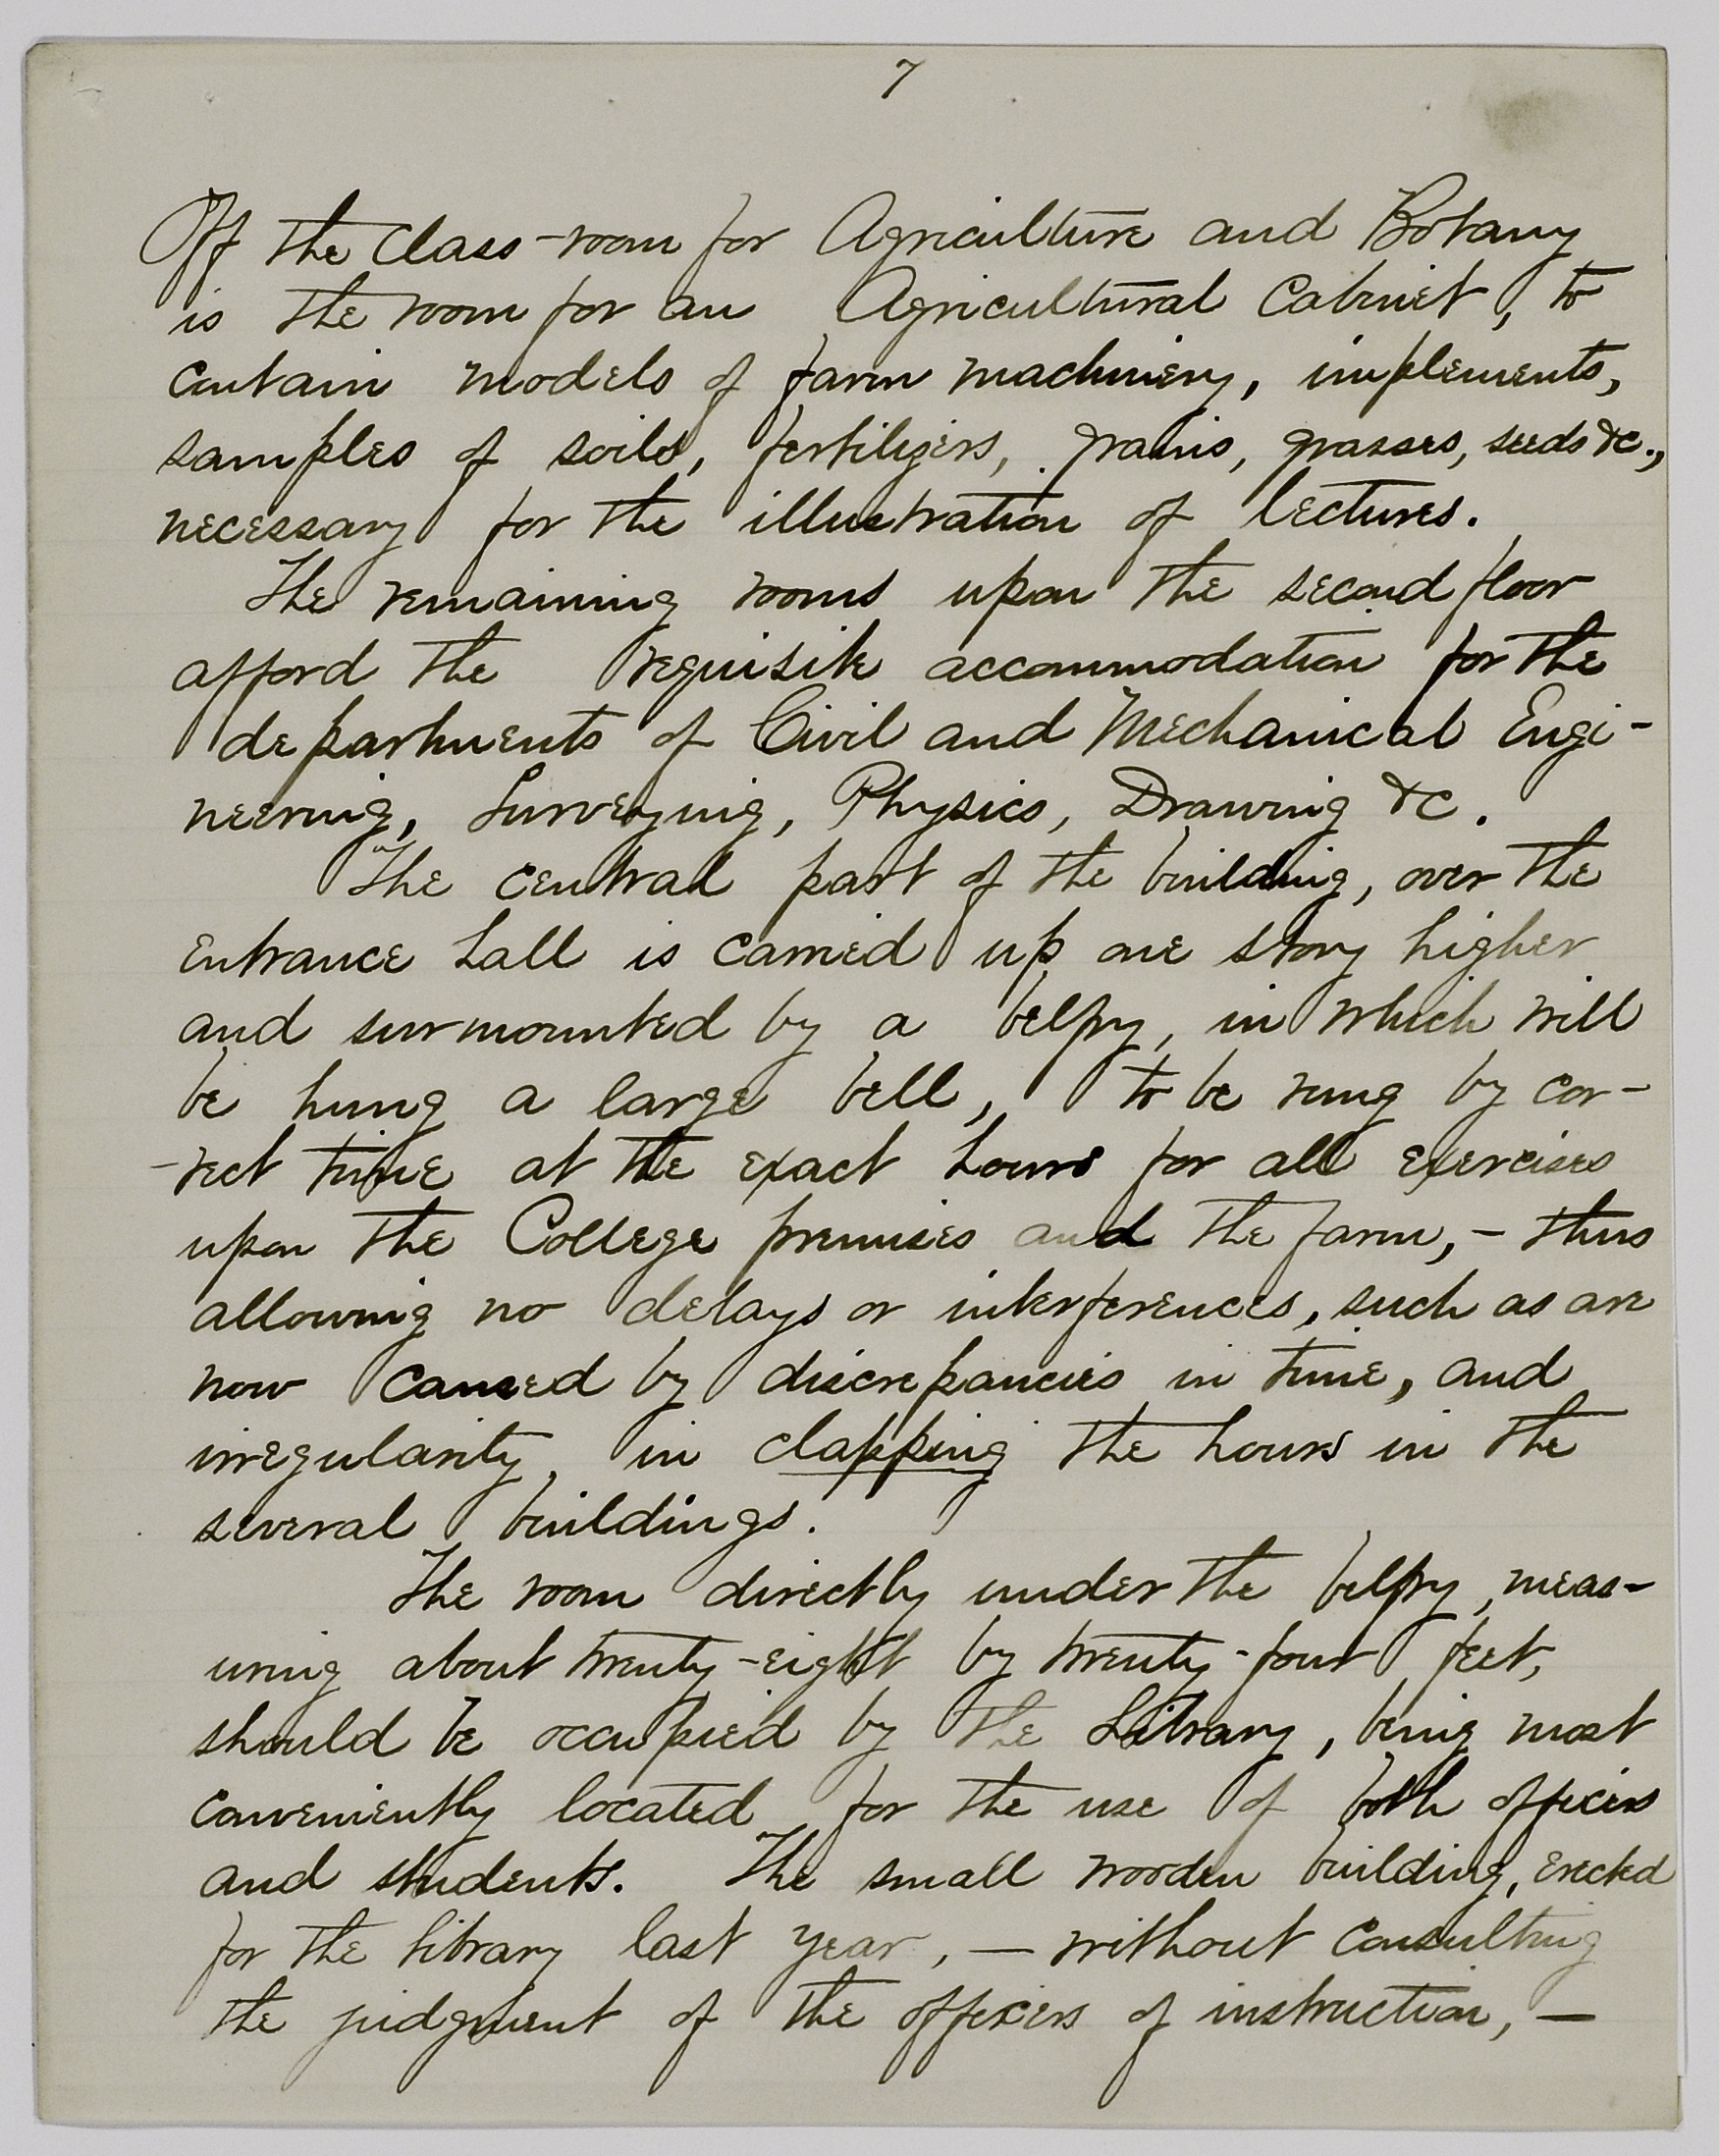 7
Off the Class-room for Agriculture and Botany
is the room for an Agricultural Cabinet, to
contain models of farm machinery, implements,
samples of soils, fertilizers, grains, grasses, seeds &c.,
necessary for the illustration of lectures.
The remaining rooms upon the second floor
afford the requisite accommodation for the
departments of Civil and Mechanical Engi-
neering, Surveying, Physics, Drawing &c.
The central part of the building, over the
entrance hall is carried up one story higher
and surmounted by a belfry, in which will
be hung a large bell, to be rung by cor-
-rect time at the exact hours for all exercises
upon the College premises and the farm, - thus
allowing no delays or interferences, such as are
now caused by discrepancies in time, and
irregularity, in clapping the hours in the
several buildings.
The room directly under the belfry, meas-
uring about twenty-eight by twenty-four feet,
should be occupied by the Library, being most
conveniently located for the use of both officers
and students. The small wooden building, erected
for the library last year, — without consulting
the judgment of the officers of instruction, —